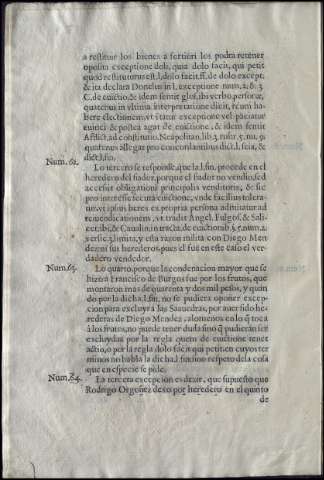 a restituir los bienes a tertiêri los podra retener
oposita exceptione doli, quia dolo facit, qui petit
quod restituturus est, l, dolo facit, ff. de dolo except.
& ita declara Donelus in l, exceptione num, 2. & 3.
C. de euictio, & idem sentit glos, ibi verbo, perserar,
quatenus in vltima interpretatione dicit, reum habere
electionem, vt vtatur exceptione vel patiatur
euinci & postea agat de euictione, & idem sentit
Afflict, ad constitutio, Neapolitan, lib. 3. rubr. 5. nu, 9.
quatenus allegat pro concordantibus dict. l, seia, &
dict. l. fin.
Num. 62.
Lo tercero se responde, que la l. fin, procede en el
heredero del fiador, porque el fiador no vendio, sed
accessit obligationi principalis venditoris, & sic
pro interesse locatur euictione, vnde facilius toleratur,
vt ipsius heres ex propria persona admittatur ad
reuendicationem, vt tradit Angel, Fulgos, & Salicet,
ibi, & Caualin, in tracta, de euictionib. §. 5. num, 2.
versic, limita, y esta razon milita con Diego Mendez
ni sus herederos, pues el fue en este caso el verdadero
vendedor.
Num. 63.
Lo quarto, porque la condenacion mayor que se
hizo a Francisco de Burgos fue por los frutos, que
montaron mas de quarenta y dos mil pesos, y quando
por la dicha l. fin, no se pudiera oponer excepcion
para excluyr a las Saauedras, por auer sido herederas
de Diego Mendez, alomenos en lo q̃ toca
à los frutos, no puede tener duda sino q̃ pudieran ser
excluydas por la regla quem de euictione tenet
actio, o por la regla dolo facit qui petit en cuyos terminos
no habla la dicha l. fin, sino respeto de la cosa
que en especie se pide.
Num. 64.
La tercera excepcion es dezir, que supuesto que
Rodrigo Orgoñez dexo por heredero en el quinto
de